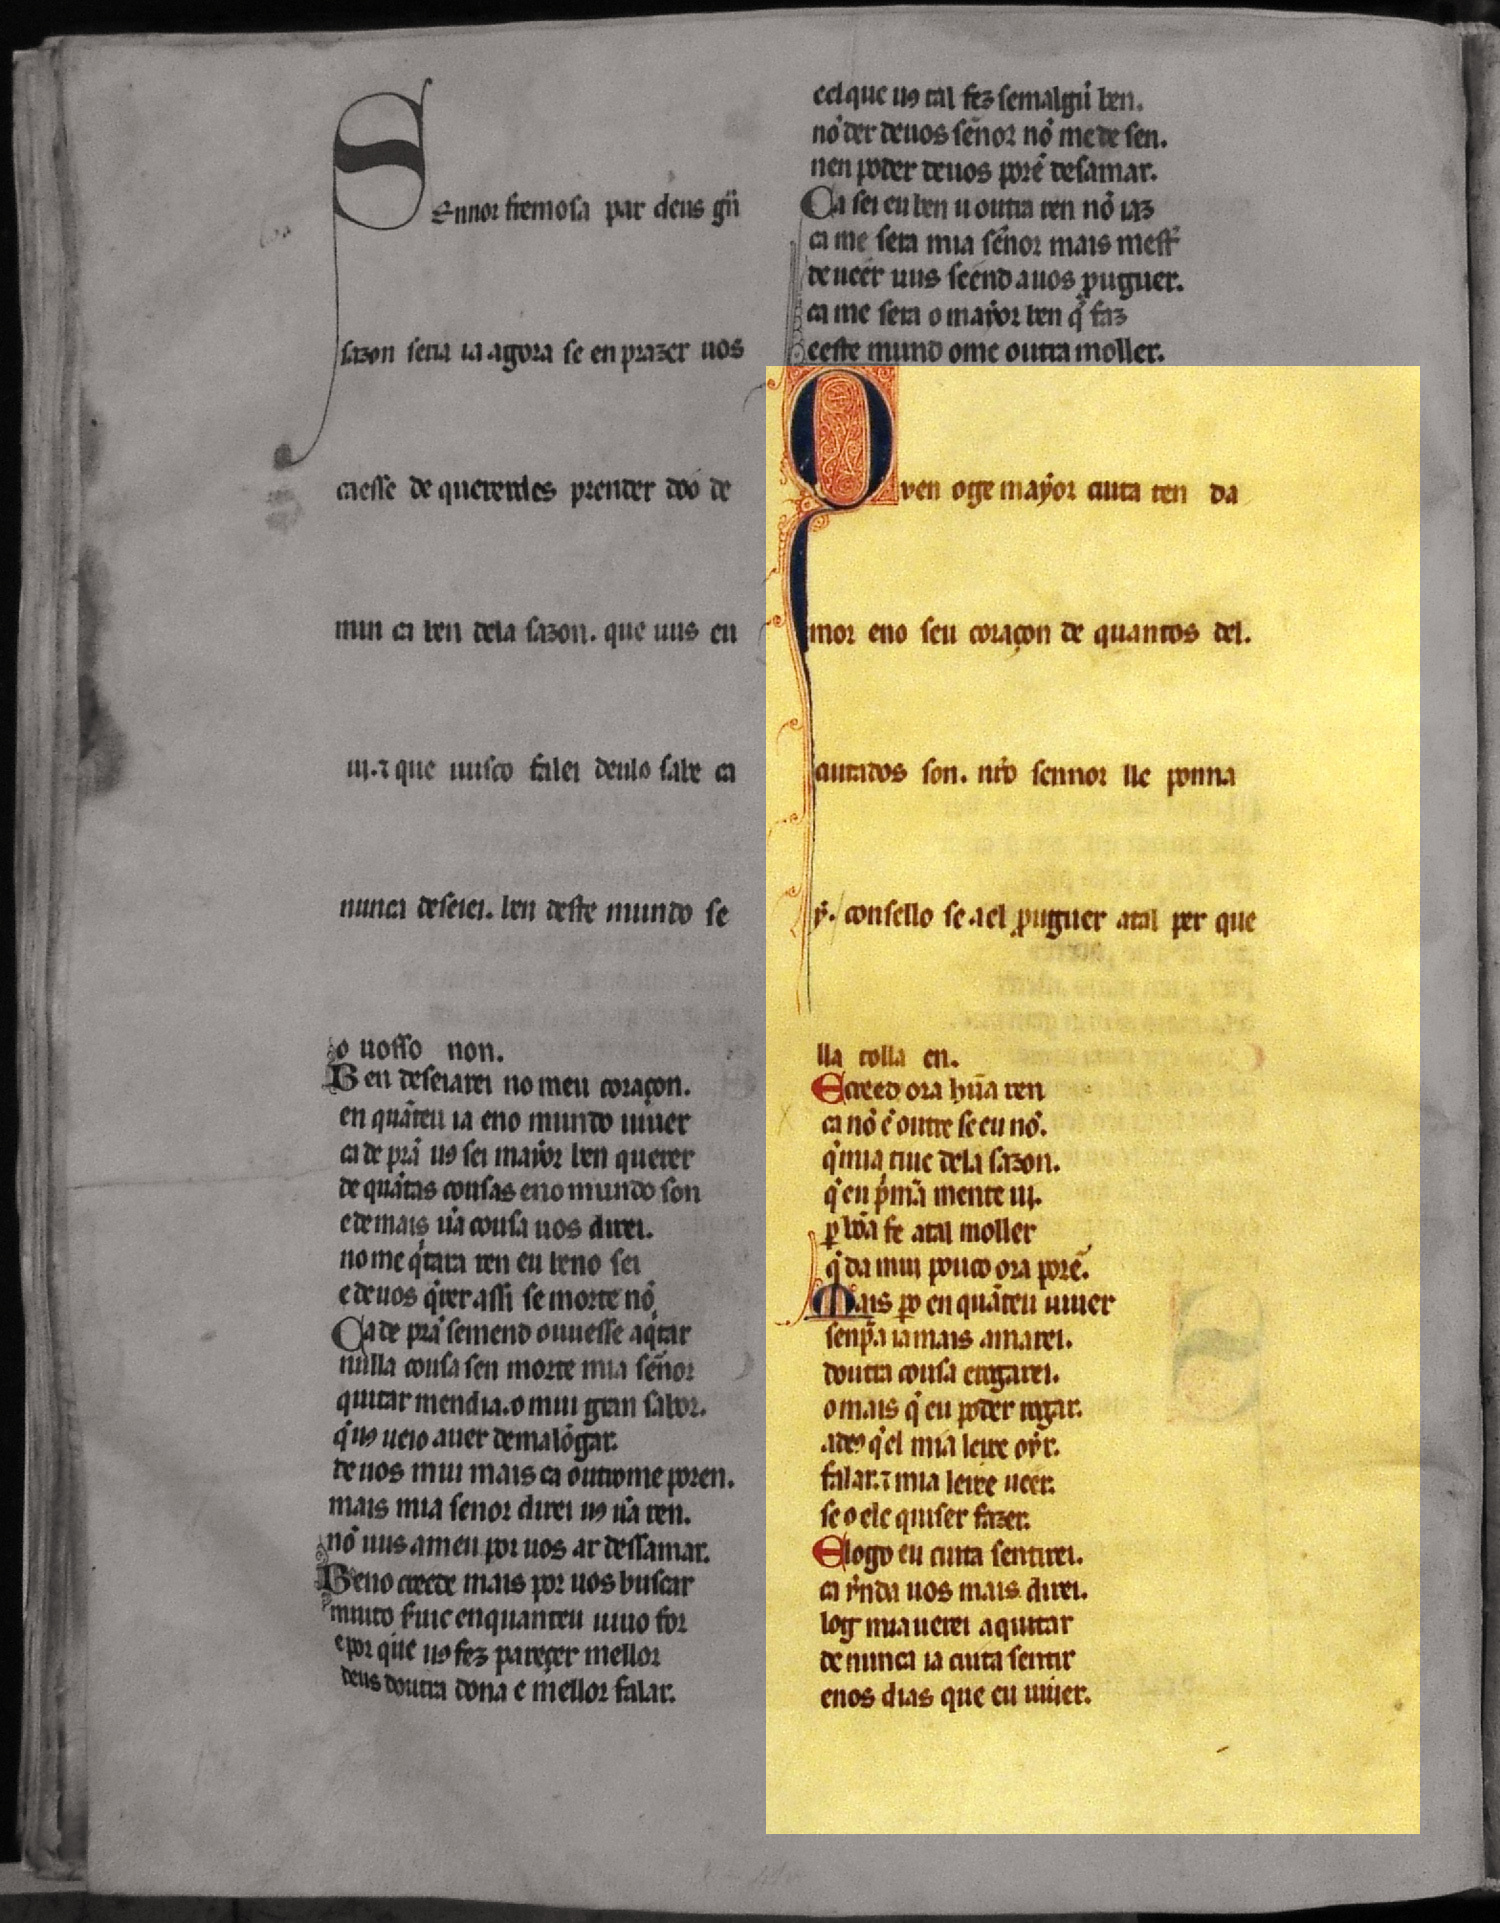 Sennor fremosa par deus gñ
sazon seria ia agora se en prazer uos
caesse de quererdes prender doo de
min ca ben dela sazon. que uus eu
ui. ⁊ que uusco falei deulo sabe ca
nunca deseiei. ben deste mundo se
o uosso non.
Ben deseiarei no meu coraçon.
en quãteu ia eno mundo uiuer
ca de prã uꝯ sei mayor ben querer
de quãtas cousas eno mundo son
e demais ũa cousa uos direi.
no me q̇tara ren eu beno sei
e de uos q̇rer assi se morte nõ
Ca de prã semend ouuesse aq̇tar
nulla cousa sen morte mia señor
quitar mendia. o mui gran sabor.
q̇ uꝯ ueio auer demalõgar.
de uos mui mais ca outrome poren.
mais mia senor direi uꝯ ũa ren.
nõ uus ameu por uos ar dessamar.
Beno creede mais por uos buscar
muito ßuic enquanteu uiuo for
e por que uꝯ fez pareçer mellor
deus doutra dona e mellor falar.
eel que uꝯ tal fez semalgũ ben.
nõ der deuos señor nõ me de sen.
nen poder deuos porẽ desamar.
Ca sei eu ben u outra ren nõ iaz
ca me sera mia señor mais mest̉
de ueer uus seend auos ꝓuguer.
ca me sera o mayor ben q̃ faz
eeste mund ome outra moller.
Quen oge mayor cuita ten da
mor eno seu coraçon de quantos del.
cuitados son. nr̃o sennor lle ponna
ẏ. consello se a el ꝓuguer atal per que
lla tolla en.
E creed ora hũa ren
ca nõ é outre se eu nõ.
q̇ mia tiue dela sazon.
q̇ eu p̉mã mente ui.
ꝑ bõa fe atal moller
q̇ da mui pouco ora porẽ.
Mais ꝑo en quãteu uiuer
senp̃a iamais amarei.
doutra cousa enrogarei.
o mais q̇ eu poder rogar.
a deꝯ q̇ el mia leixe oyr.
falar. ⁊ mia leixe ueer.
se o ele quiser fazer.
E logo eu cuita sentirei.
ca ynda uos mais direi.
log mia uerei a quitar
de nunca ia cuita sentir
enos dias que eu uiuer.